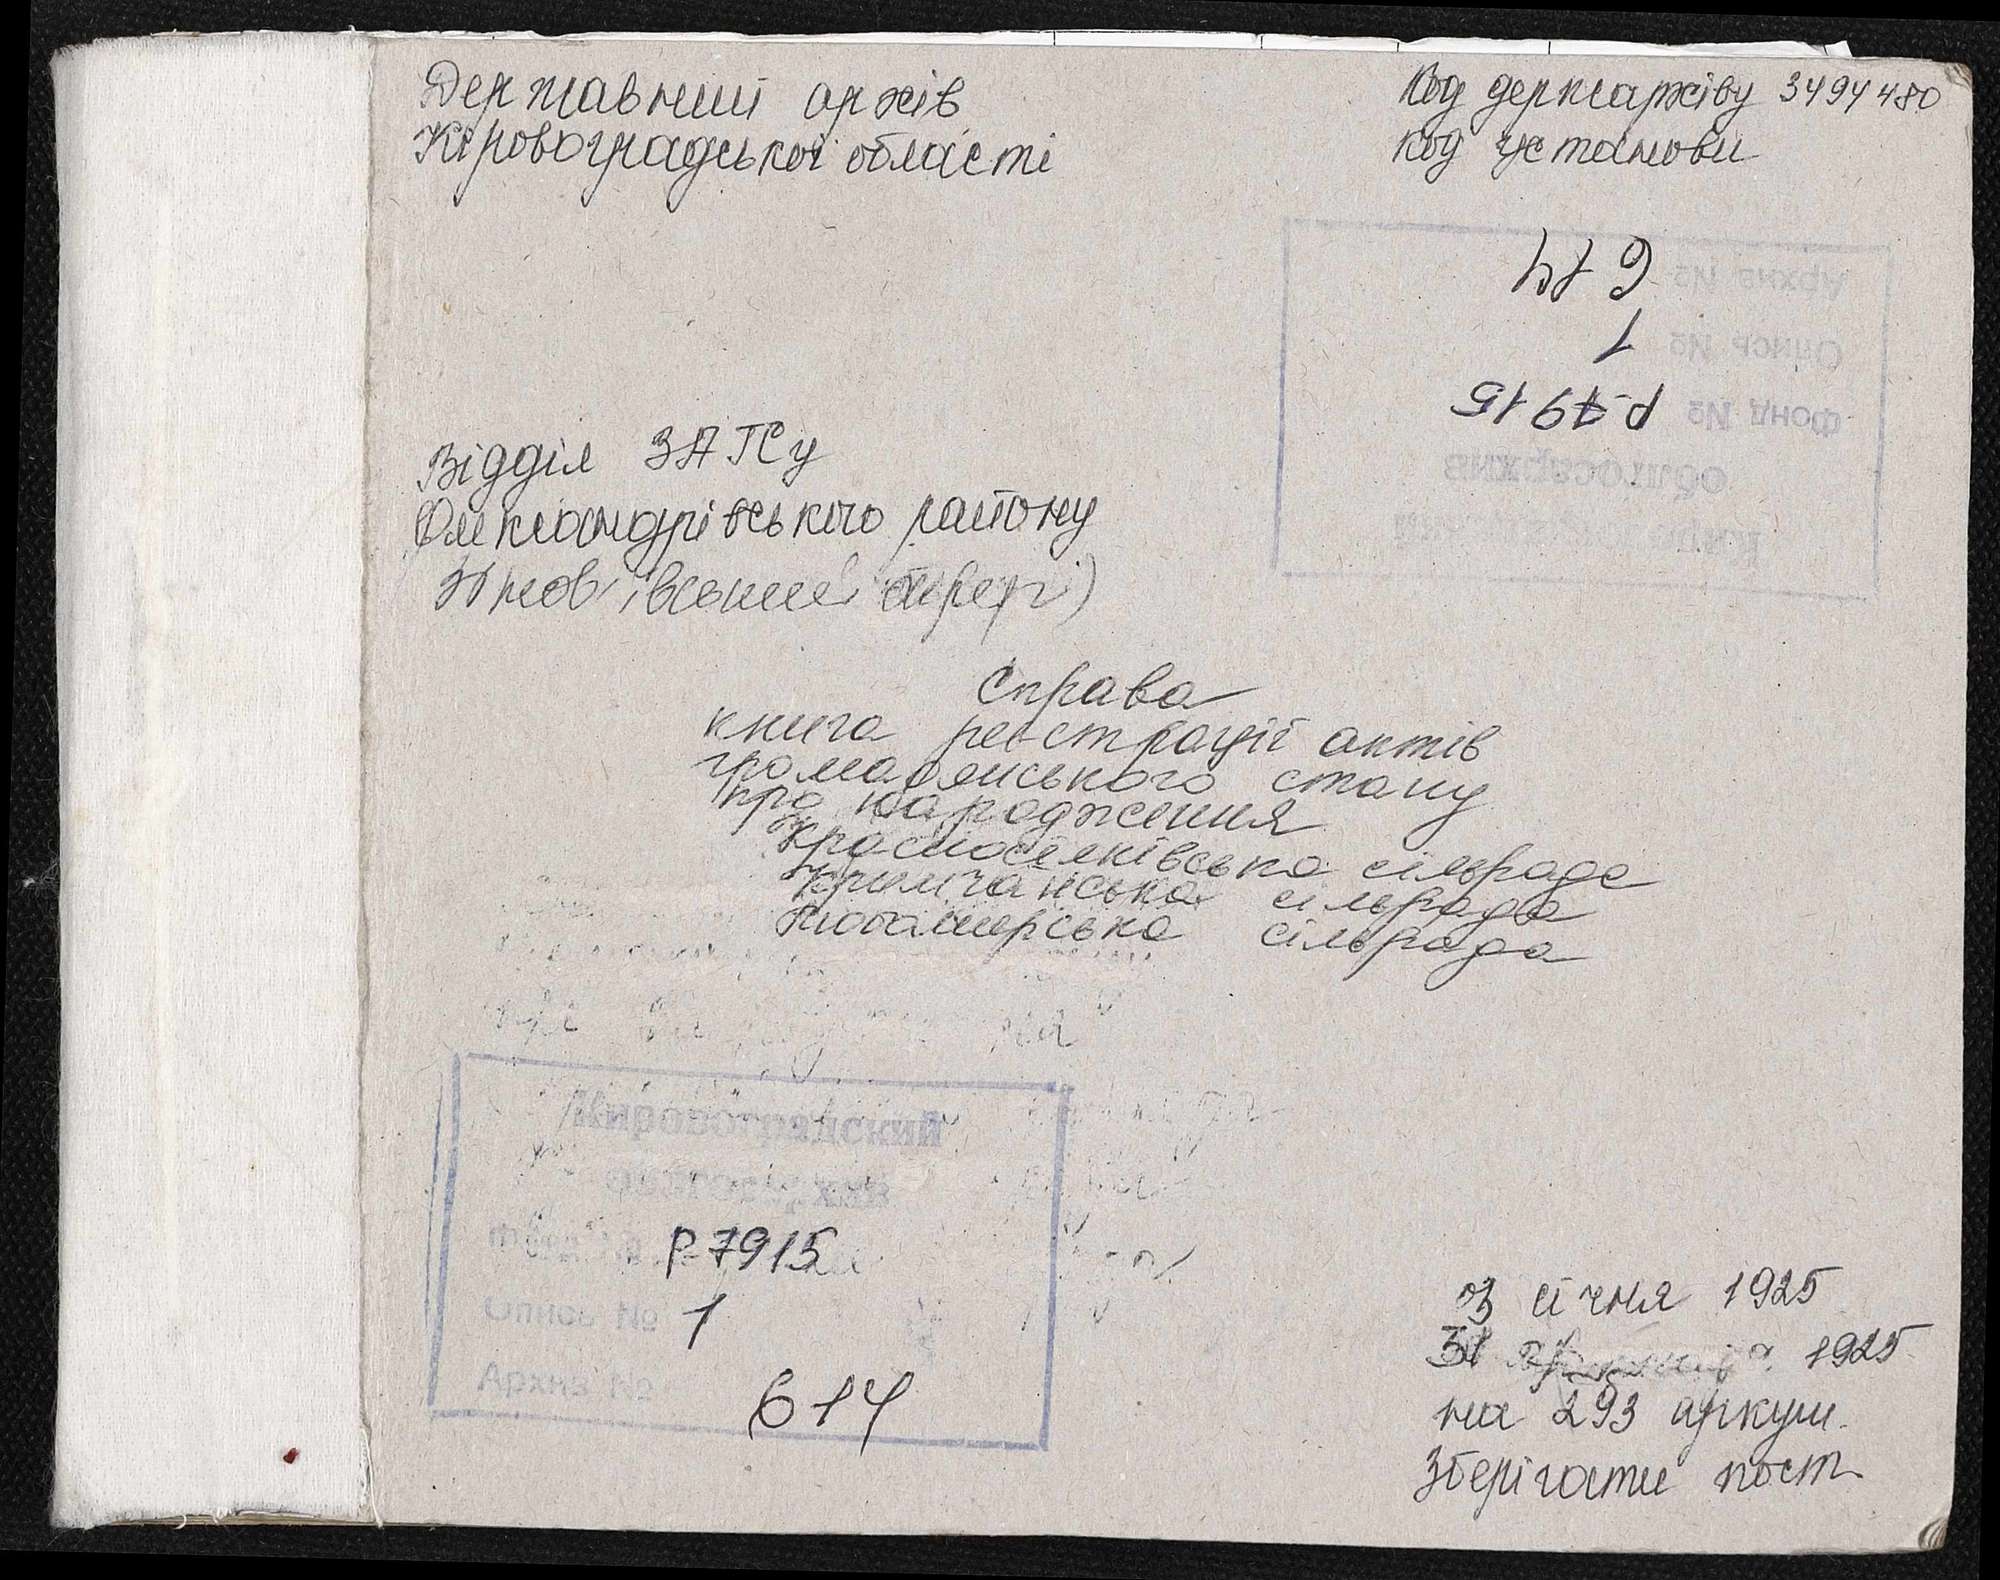 Державний архів
Кіровоградської області
Код держархіву 3494480
Код установи
Архив № 614
Опись № 1
Фонд № Р-7915
облгосархив
Відділ ЗАГСу
Олександрівського району
Справа
книга реєстрації актів
громадянського стану
про народження
Красносілківська сільрада
Кримчанська сільрада
Любомирська сільрада
Кировоградский
облгосархив
Фонд № Р-7915
Опись № 1
Архив № 614
3 січня 1925
31 1925
на 293 аркуш.
Зберігати пост.